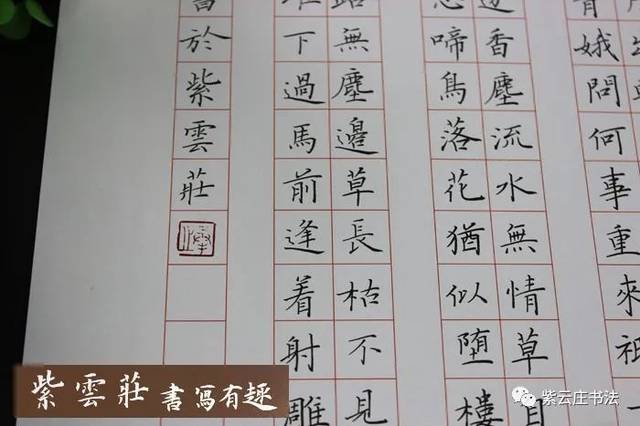 娥問何事重來祇
香塵流水無情草自
啼鳥落花猶似堕樓
無塵邊草長枯不見
下過馬前逢着射雕
於紫雲莊
紫雲莊 書寫有趣
紫云庄书法